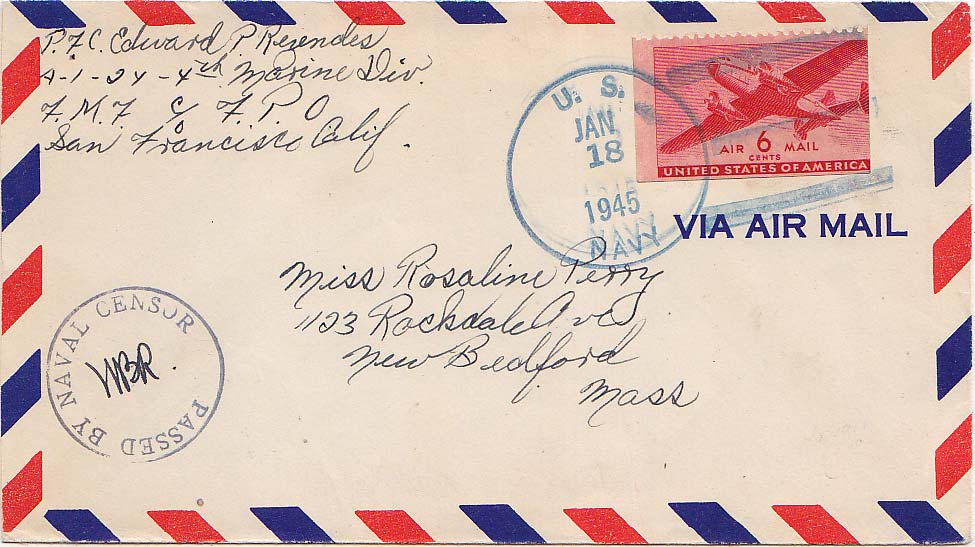 P.F.C. Edward P. Rezendes
A-1-24-4th Marine Div.
F.M.F c/o F.P.O
San Francisco Calif.
U. S.
JAN
18
1945
NAVY
AIR 6 MAIL
CENTS
UNITED STATES OF AMERICA
VIA AIR MAIL
Miss Rosaline Perry
1123 Rockdale Ave
New Bedford
Mass
PASSED BY NAVAL CENSOR
WBR.